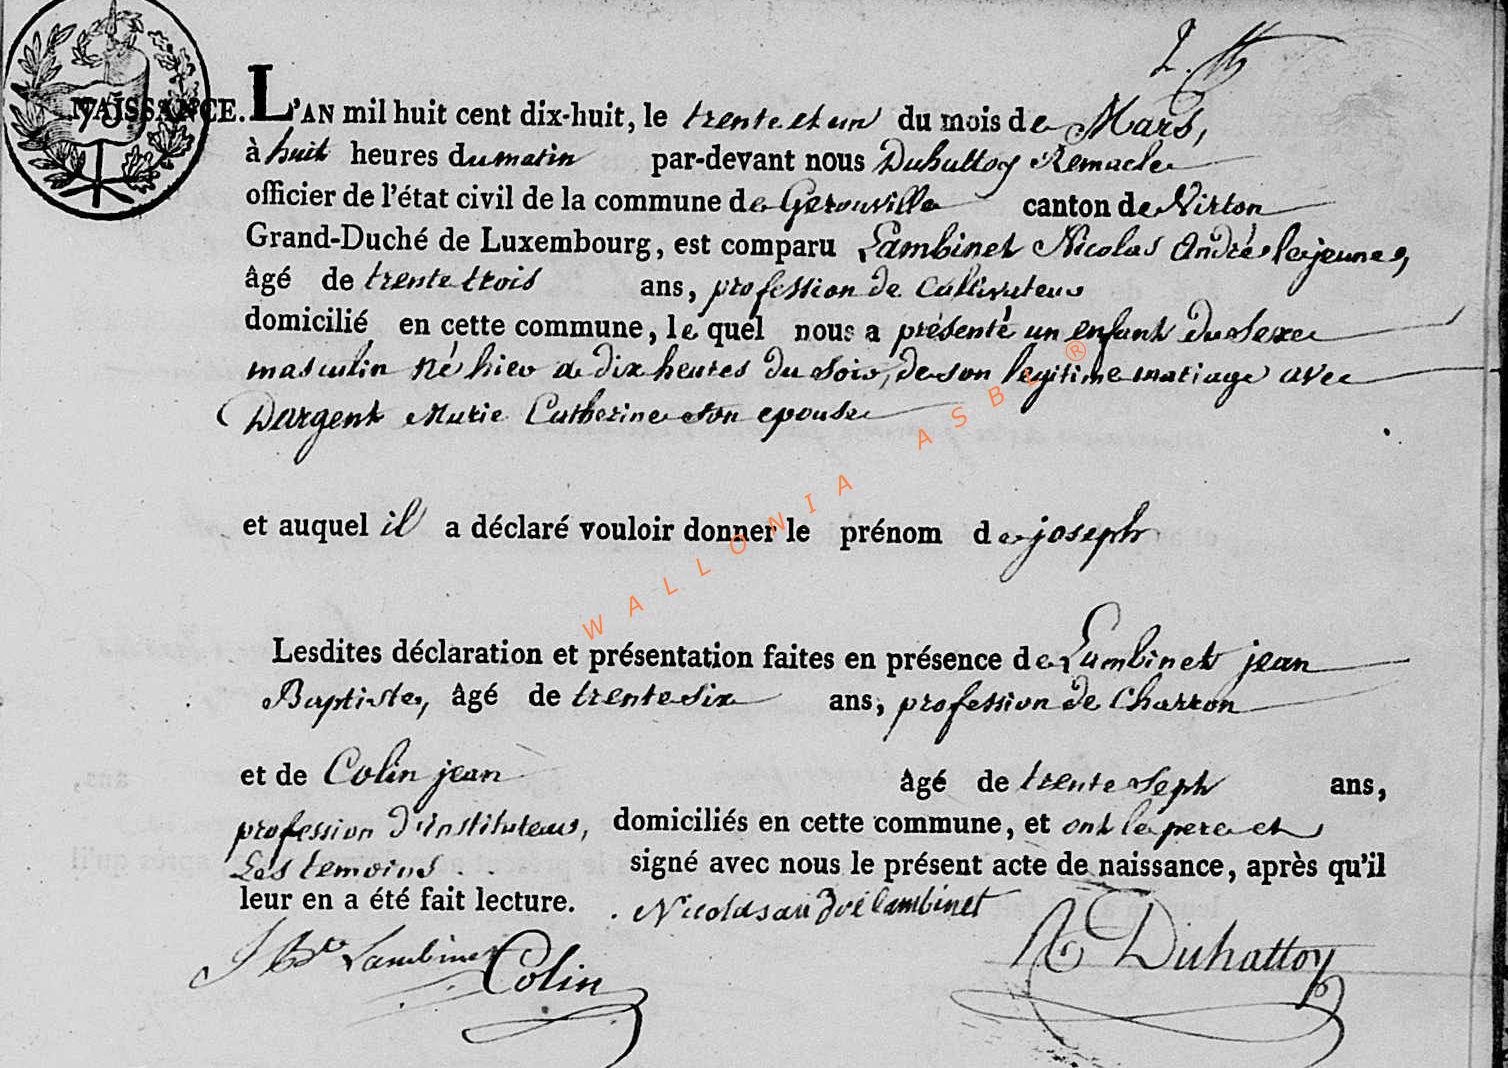 2.
75
NAISSANCE. L'AN mil huit cent dix-huit, le trente et un du mois de Mars,
à huit heures du matin par-devant nous Duhattoy Remacle
officier de l'état civil de la commune de Gerouville canton de Virton
Grand-Duché de Luxembourg, est comparu Lambinet Nicolas André le jeune,
âgé de trente trois ans, profession de Cultivateur
domicilié en cette commune, le quel nous a présenté un enfant du sexe
masculin né hier a dix heures du soir, de son legitime mariage avec
Dargent Marie Catherine son epouse
et auquel il a déclaré vouloir donner le prénom de joseph
Lesdites déclaration et présentation faites en présence de Lambinet jean
Baptiste, âgé de trente six ans, profession de Charron
et de Colin jean âgé de trente sept ans,
profession d'instituteur, domiciliés en cette commune, et ont le pere et
les temoins signé avec nous le présent acte de naissance, après qu'il
leur en a été fait lecture. Nicolas andré lambinet
J Bte Lambinet Colin R Duhattoy
WALLONIA ASBL ®